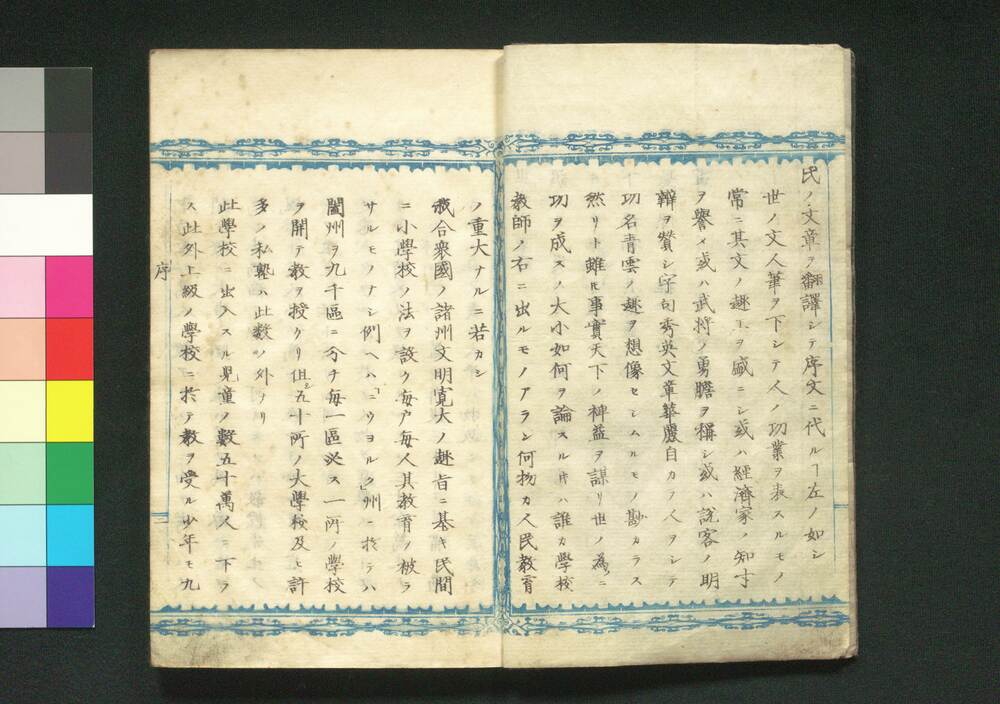 氏ノ文章ヲ翻譯シテ序文ニ代ルヿ左ノ如シ
世ノ文人筆ヲ下シテ人ノ功業ヲ表スルモノ
常ニ其文ノ趣工ヲ盛ニシ或ハ經濟家ノ知才
ヲ譽メ或ハ武將ノ勇膽ヲ稱シ或ハ說客ノ明
辯ヲ贊シ字句秀英文章華麗自カラ人ヲシテ
功名青雲ノ趣ヲ想像セシムルモノ尠カラス
然リト雖𪜈事實天下ノ裨益ヲ謀リ世ノ為ニ
功ヲ成スノ大小如何ヲ論スル𪜈ハ誰カ學校
教師ノ右ニ出ルモノアラン何物カ人民教育
ノ重大ナルニ若カン
我合衆國ノ諸州文明寛大ノ趣旨ニ基キ民間
ニ小學校ノ法ヲ設ケ毎戸毎人其教育ノ被ラ
サルモノナシ例ヘハ「ニウヨルク」州ニ於テハ
闔州ヲ九千區ニ分チ毎一區必ス一所ノ學校
ヲ開テ教ヲ授ケリ但シ五十所ノ大學校及ヒ許
多ノ私塾ハ此数ノ外ナリ
此學校ニ出入スル児童ノ數五十萬人ニ下ラ
ス此外上級ノ學校ニ於テ教ヲ受ル少年モ九
序
二